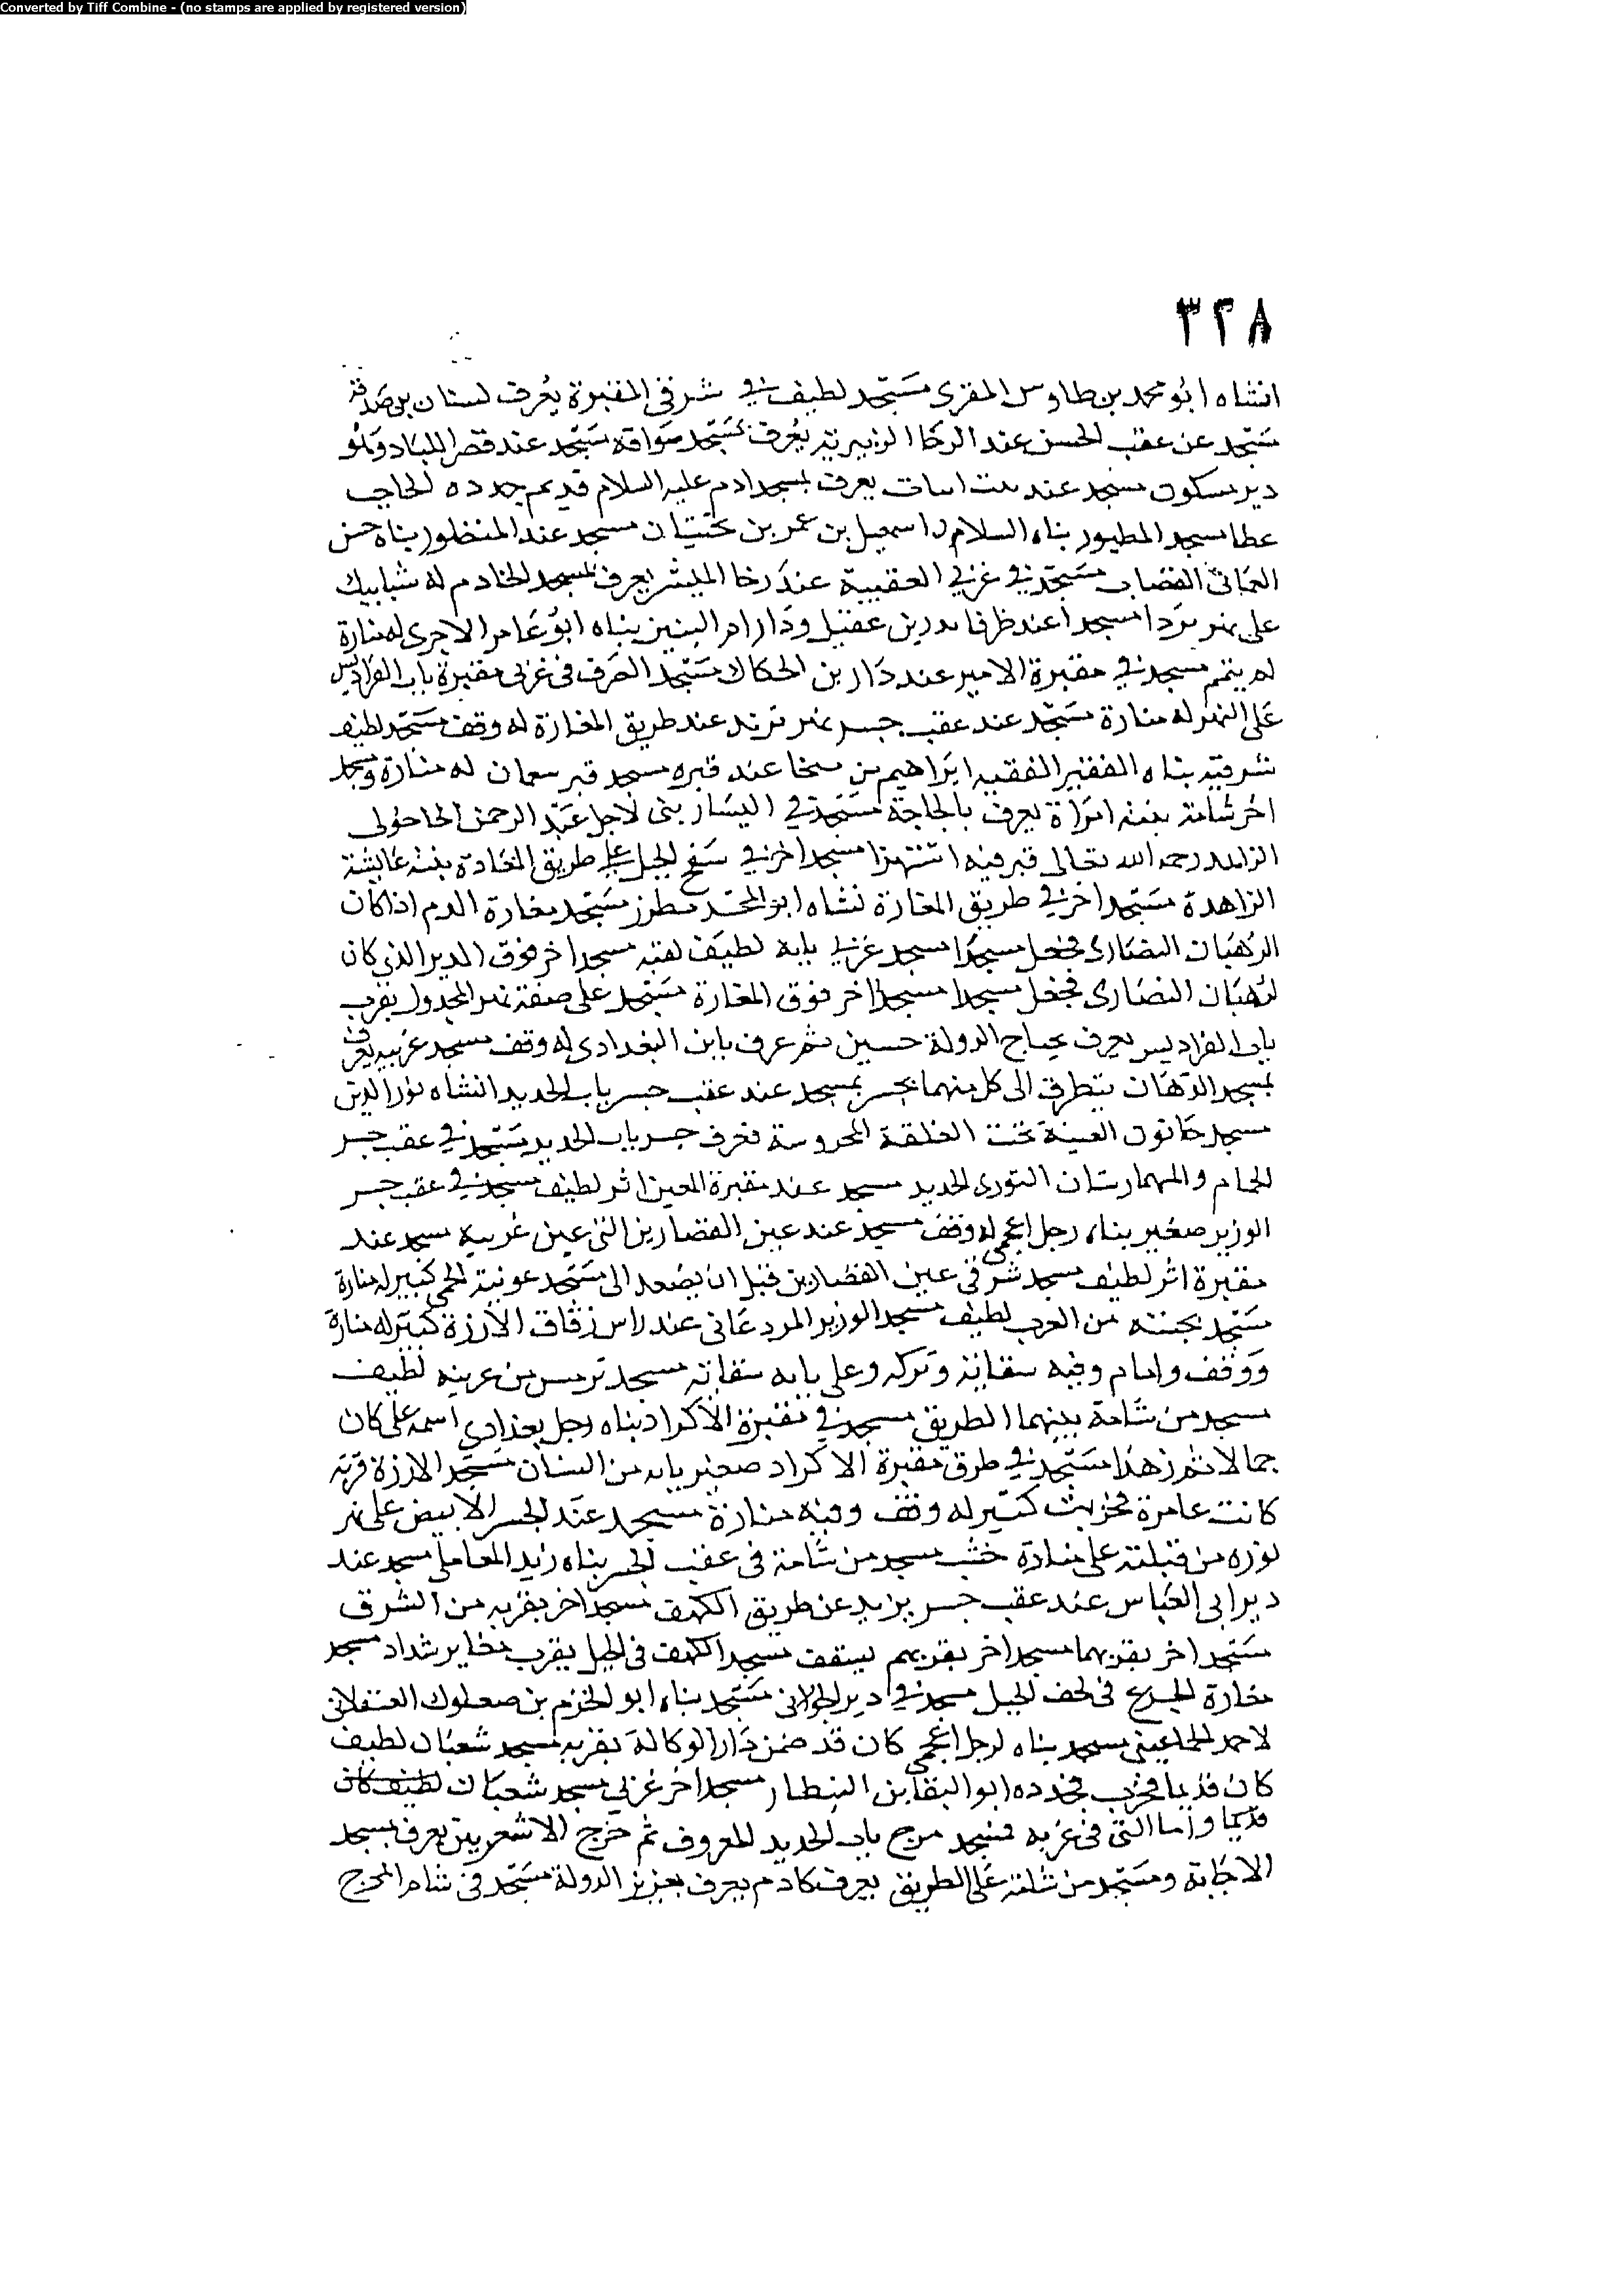 Converted by Tiff Combine - (no stamps are applied by registered version)
٣٢٨
انشاه ابو محمد بن طاوس المقرى مسجد لطيف في شرقى المقبرة يعرف لستان بن صدقة
مسجد عن عقب الحسن عند الرحا الزبيرية يعرف بمسجد سواقه مسجد عند قصر اللباد
دير مسكون مسجد عند بيت ابيات يعرف بمسجد ادم عليه السلام قديم جدده الحاجب
عطا مسجد المطيور بناه السلام اسمعيل بن عمر بن بختيان مسجد عند المنظور بناه حسن
العمانى القصاب مسجد في غربي العقيبة عند رحا يعرف بمسجد الخادم له شبابيك
على نهر بردا مسجد عند بن عقيل ودار ام البنين بناه ابو عامر الاجرى له منارة
لم يتم مسجد في مقبرة الامير عند دار بن الحكاك مسجد العرف فى غربى مقبرة باب الفراديس
على النهر له منارة مسجد عند عقب جسر نهر عند طريق المغارة له وقف مسجد لطيف
شرقيه بناه الفقير الفقيه ابراهيم بن عند قبره مسجد قبر له منارة ومسجد
اخر شامه بنته امراة يعرف مسجد في اليسار بنى لاجل عبد الرحمن
الزاهد رحمه الله تعالى قبر فيه مسجد اخر في سفح الجبل على طريق المغارة بنته عايشة
الزاهدة مسجد اخر في طريق المغارة نشاه ابو مطرز مسجد مغارة الدم اذا كان
الرهبان النصارى فجعل مسجدا مسجد غربي بابه لطيف مسجد اخر فوق الدير الذى كان
لرهبان النصارى فجعل مسجدا مسجد اخر فوق المغارة مسجد على ضفة نهر المجدول بقرب
باب الفراديس يعرف الدولة حسين ثم عرف بابن البغدادى له وقف مسجد غربيه يعرف
بمسجد الدهان يتطرق الى كل منهما بجسر مسجد عند عقب جسر باب الحديد انشاه نور الدين
مسجد خاتون تحت القلقة المحروسة تعرف جسر باب الحديد مسجد في عقب جسر
الحمام والمهمارستان النورى الحديد مسجد عند مقبرة المعين اثر لطيف مسجد في عقب جسر
الوزير صغير بناه رجل اعجمى له وقف مسجد عند عين القصارين التى عين غربيه مسجد عند
مقبرة اثر لطيف مسجد شرقى عين القصارين قبل ان يصعد الى مسجد عونية الحمى كبير له منارة
مسجد بجنبه من الغرب لطيف مسجد الوزير المردغانى عند راس زقاق الارزة كبير له منارة
ووقف وامام وفيه سقاية وبركه وعلى بابه سقاية مسجد من غربيه لطيف
مسجد من شامة بينهما الطريق مسجد في مقبرة الاكراد بناه رجل بغدادي اسمه على كان
جمالا مسجد في طرق مقبرة الاكراد صغير بابه من البستان مسجد الارزة قرية
كانت عامرة فخربت كبير له وقف وفيه منارة مسجد عند الجسر الابيض على نهر
توره من قبلته على منارة خشب مسجد من شامة فى عقب الجسر بناه زيد المعاملى مسجد عند
دير ابى العباس عند عقب جسر يزيد عن طريق الكهف مسجد اخر بقربه من الشرق
مسجد اخر بقربهما مسجد اخر بقربهم مسجد الكهف فى الجبل بقرب شداد مسجد
مغارة الجوع فى لحف الجبل مسجد في دير الحولانى مسجد بناه ابو الحزم بن صعلوك العسقلانى
لاحمد الجماعينى مسجد بناه لرجل اعجمى كان قد ضمن دار الوكالة بقربه مسجد شعبان لطيف
كان قديما فخرب فجدده ابو البقا بن البيطار مسجد اخر غربي مسجد شعبان لطيف كان
قديما واما التى فى غربه فمسجد مرج باب الحديد المعروف ثم خرج الاشعريين يعرف بمسجد
الاجابة ومسجد من شامه على الطريق يعرف يعرف بعزيز الدولة مسجد فى شام المرج